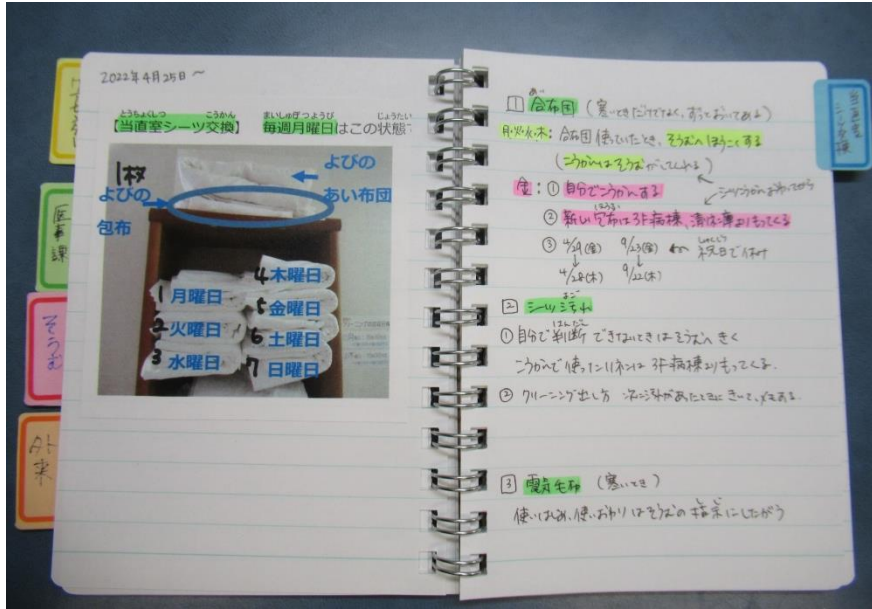 2022年4月25日~
とうちょくしつ こうかん まいしゅうげつようび じょうたい
【当直室シーツ交換】 毎週月曜日はこの状態
1枚
よびの
あい布団
よびの
包布
1月曜日
2火曜日
3水曜日
4木曜日
5金曜日
6土曜日
7日曜日
医事課
そうむ
外来
あい
1 合布団(寒いときだけでなく、ずっとおいてある)
月・火・水・木:合布団使っていたとき、そうむへほうこくする
(こうかんはそうむがしてくれる)
シーツこうかんおわってから
金:① 自分でこうかんする
② 新しい包布は3F病棟、清潔庫よりもってくる
③ 4/29(金) 9/23(金) ← 祝日で休み
しゅくじつ
↓ ↓
4/28(木) 9/22(木)
よご
2 シーツ汚れ
はんだん
① 自分で判断できないときはそうむへきく
こうかんで使ったリネンは3F病棟よりもってくる。
② クリーニング出し方 次に汚れがあったときにきいて、メモする。
3 電気毛布(寒いとき)
しじ
使いはじめ、使いおわりはそうむの指示にしたがう